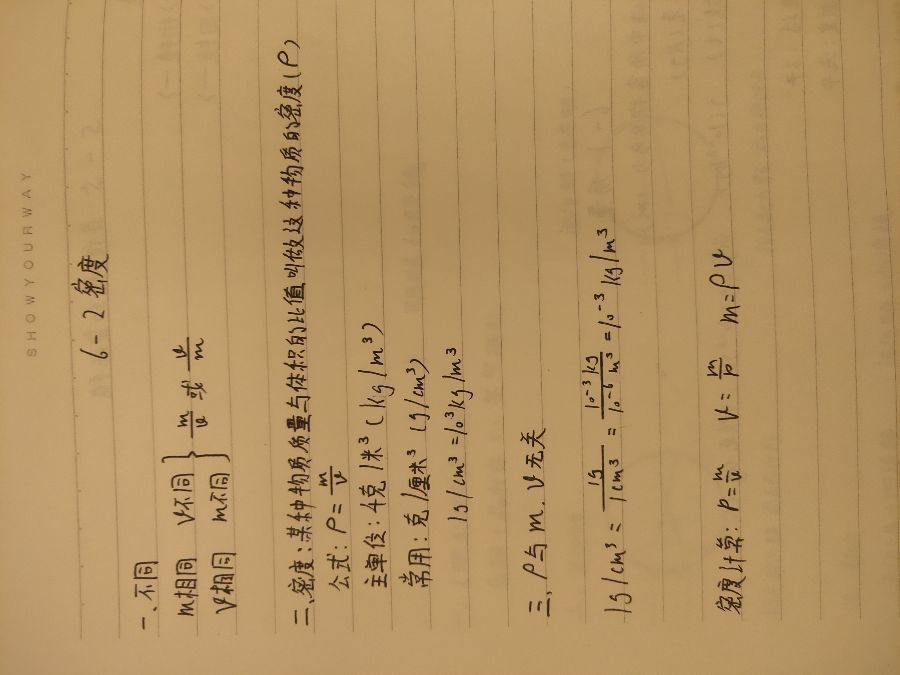 SHOWYOURWAY
6-2 密度
一、不同
m相同 v不同 } m/v 或 v/m
v相同 m不同
二、密度：某种物质质量与体积的比值叫做这种物质的密度(ρ)
公式：ρ=m/v
主单位：千克/米³ (kg/m³)
常用：克/厘米³ (g/cm³)
1g/cm³=10³kg/m³
三、ρ与m、v无关
1g/cm³ = 1g/1cm³ = 10⁻³kg/10⁻⁶m³ = 10⁻³ kg/m³
密度计算：ρ=m/v v=m/ρ m=ρv